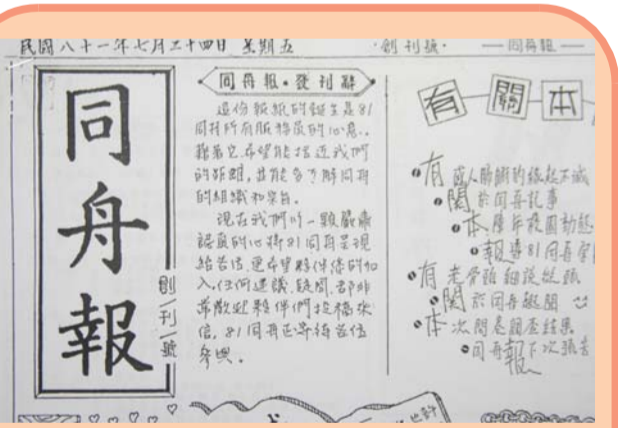 民國八十一年七月二十四日 星期五
·創刊號·
同舟報
同舟報
創刊號
同舟報·發刊辭
這份報紙的誕生是81
同舟所有服務員的心意,
藉著它,希望能拉近我們
的距離,並能多了解同舟
的組織和宗旨。
現在我們以一顆嚴肅
認真的心將81同舟呈現
給各位,更希望夥伴們的加
入,任何建議、疑問,都非
常歡迎夥伴們投稿來
信,81同舟正等待各位
參與。
有關本
有
關於同舟記事
本
報導81同舟
有老骨頭細說從頭
關於同舟
本次問卷調查結果
同舟報下次預告